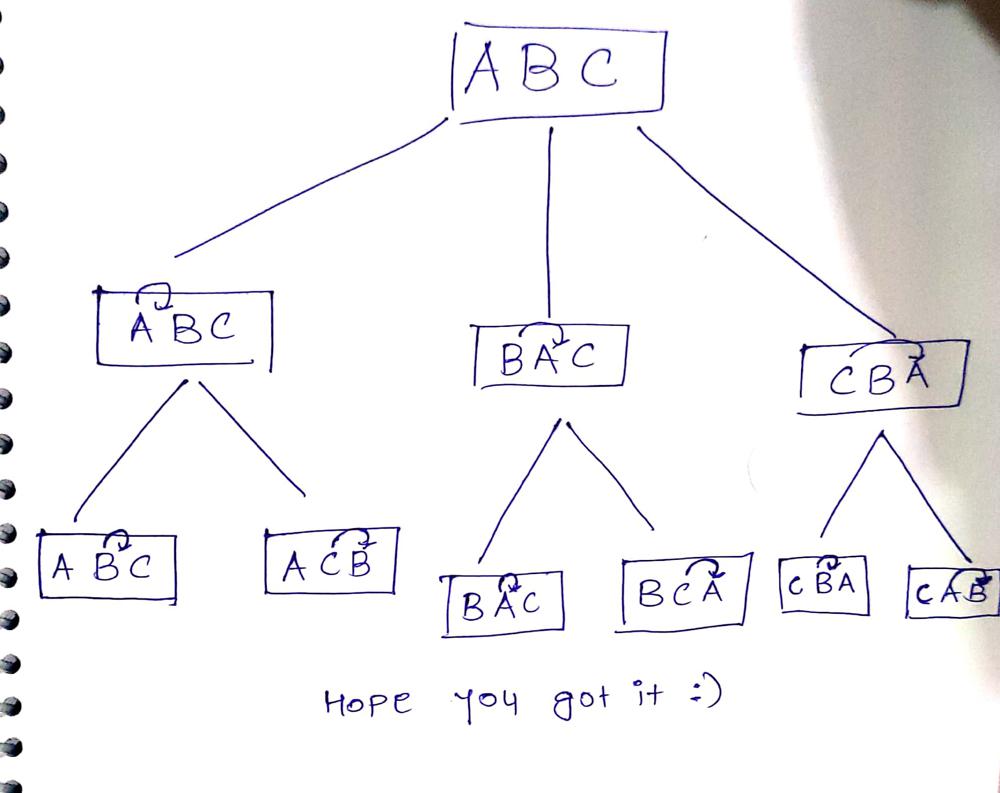 A B C
A B C
B A C
C B A
A B C
A C B
B A C
B C A
C B A
C A B
Hope you got it :)